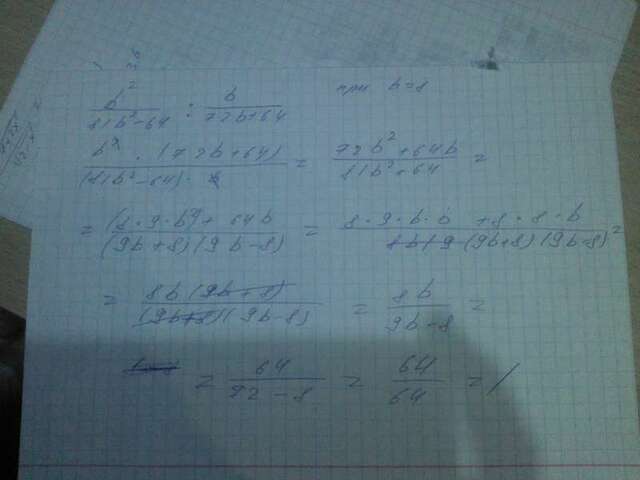 b²/(81b²-64) : b/(72b+64) при b=8
b² · (72b+64)/((81b²-64) · b) = (72b²+64b)/(81b²+64) =
= (8·9·b²+ 64b)/((9b+8)(9b-8)) = (8·9·b·b +8·8·b)/((9b+8)(9b-8)) =
= 8b(9b+8)/((9b+8)(9b-8)) = 8b/(9b-8) =
= 64/(72-8) = 64/64 = 1